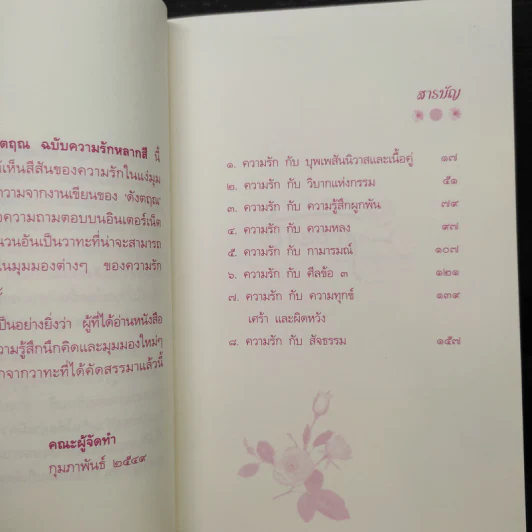 ังตฤณ ฉบับความรักหลากสี นี้
ห้เห็นสีสันของความรักในแง่มุม
ความจากงานเขียนของ 'ดังตฤณ'
อความถามตอบบนอินเตอร์เน็ต
นวนอันเป็นวาทะที่น่าจะสามารถ
นมุมมองต่างๆ ของความรัก
ป็นอย่างยิ่งว่า ผู้ที่ได้อ่านหนังสือ
วามรู้สึกนึกคิดและมุมมองใหม่ๆ
กจากวาทะที่ได้คัดสรรมาแล้วนี้
คณะผู้จัดทำ
กุมภาพันธ์ ๒๕๔๙
สารบัญ
๑. ความรัก กับ บุพเพสันนิวาสและเนื้อคู่ ๑๗
๒. ความรัก กับ วิบากแห่งกรรม ๕๑
๓. ความรัก กับ ความรู้สึกผูกพัน ๗๙
๔. ความรัก กับ ความหลง ๙๗
๕. ความรัก กับ กามารมณ์ ๑๐๗
๖. ความรัก กับ ศีลข้อ ๓ ๑๒๑
๗. ความรัก กับ ความทุกข์ ๑๓๙
เศร้า และผิดหวัง
๘. ความรัก กับ สัจธรรม ๑๕๗